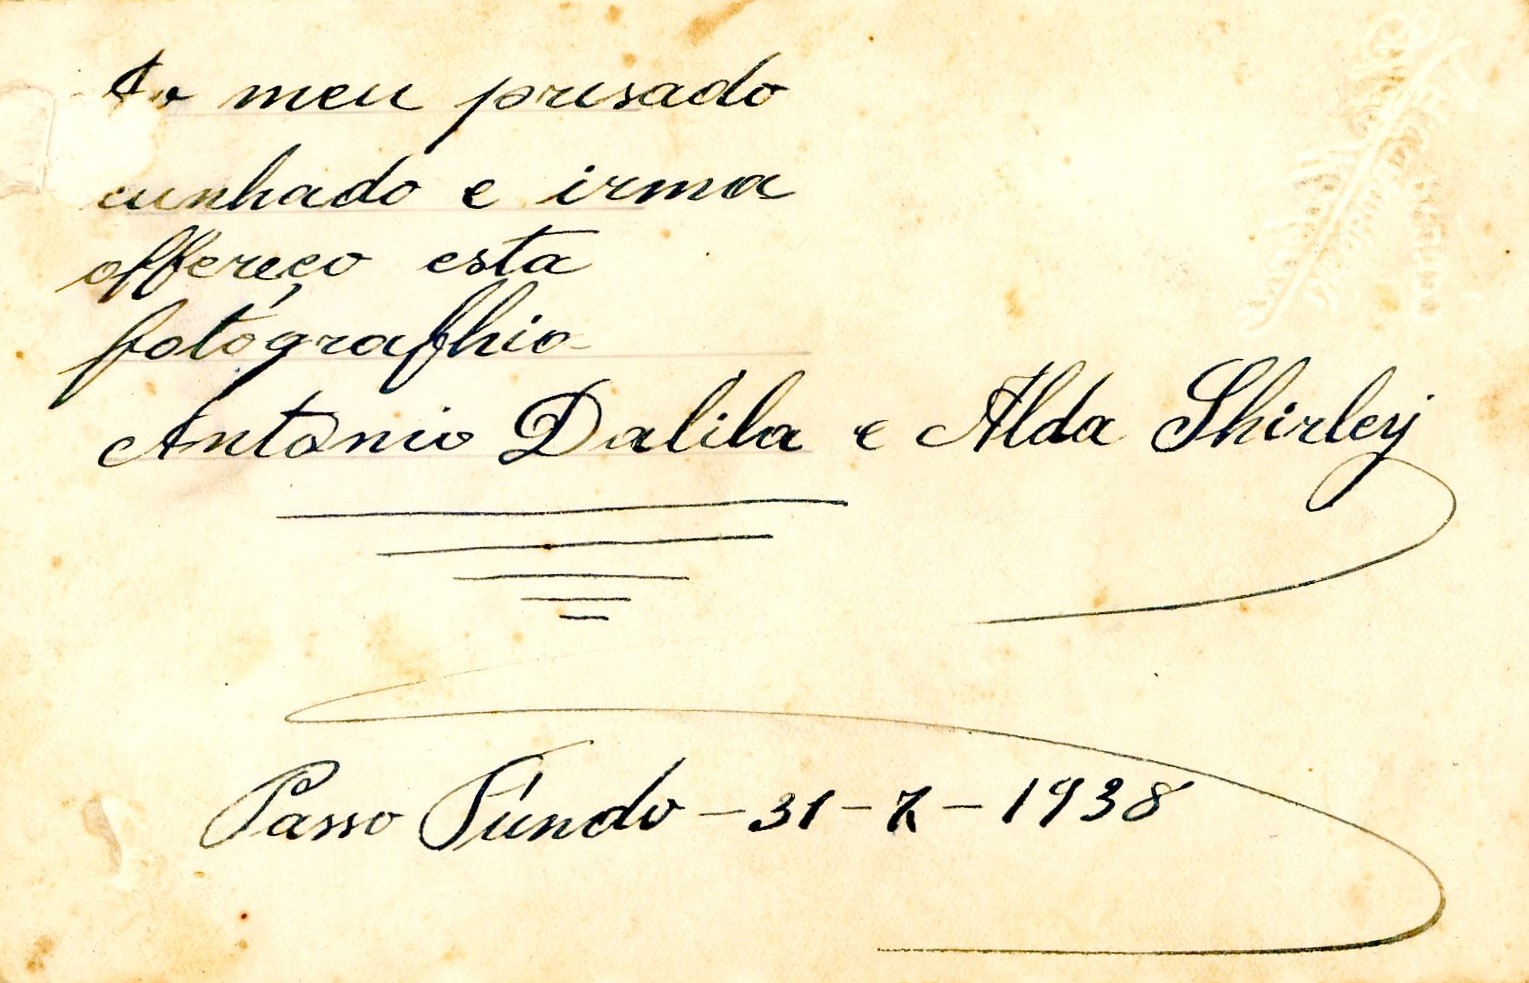 Ao meu presado
cunhado e irma
offereço esta
fotographia
Antonio Dalila e Alda Shirley
Passo Fundo - 31 - 7 - 1938